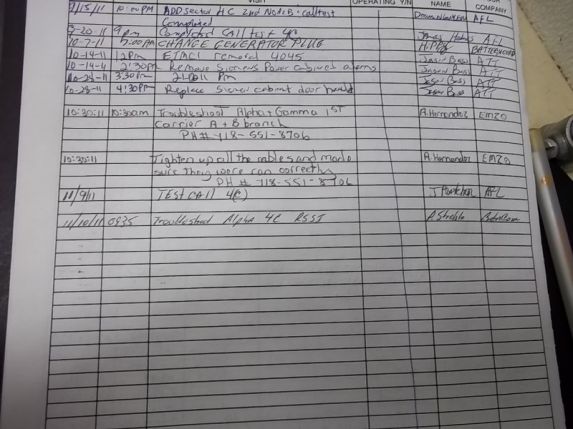 VISIT OPERATING Y/N NAME COMPANY
9/15/11 10:00PM ADD second 4C 2nd NodeB. call test AFL
Completed
9-20-11 9pm Completed Call test 4C AFL
10-7-11 9:00AM CHANGE GENERATOR PLUG
10-14-11 1PM ETMCI removal 4045 Jason Bass ATT
10-14-11 2:30PM Remove Siemens Power cabinet alarms Jason Bass ATT
10-28-11 3:30PM 21-Poll Pm Jason Bass ATT
10-28-11 4:30PM Replace Siemens cabinet door handle Jason Bass ATT
10-30-11 10:30am Troubleshoot Alpha + Gamma 1ST A. Hernandez EMZO
Carrier A + B branch
PH# 718-551-3706
10-30-11 Tighten up all the cables and made A. Hernandez EMZO
sure they were ran correctly
PH # 718-551-3706
11/9/11 TEST CALL 4C AFL
11/10/11 0935 Troubleshoot Alpha 4C RSSI